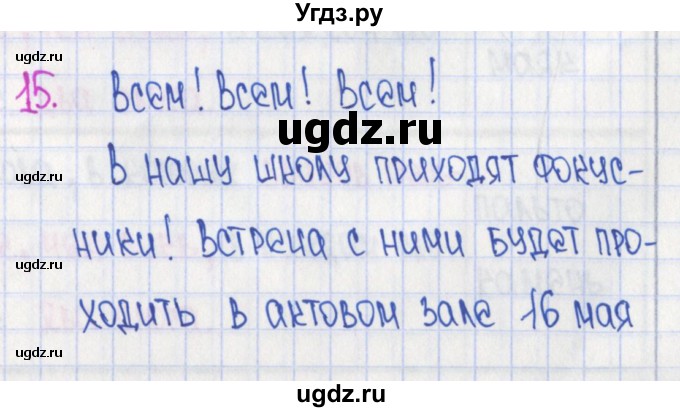 Угдз.ру
ugdz.ru ugdz.ru
15. Всем! Всем! Всем!
ugdz.ru
В нашу школу приходят фокус-
ugdz.ru
ники! Встреча с ними будет про-
ugdz.ru
ходить в актовом зале 16 мая
ugdz.ru ugdz.ru
ugdz.ru